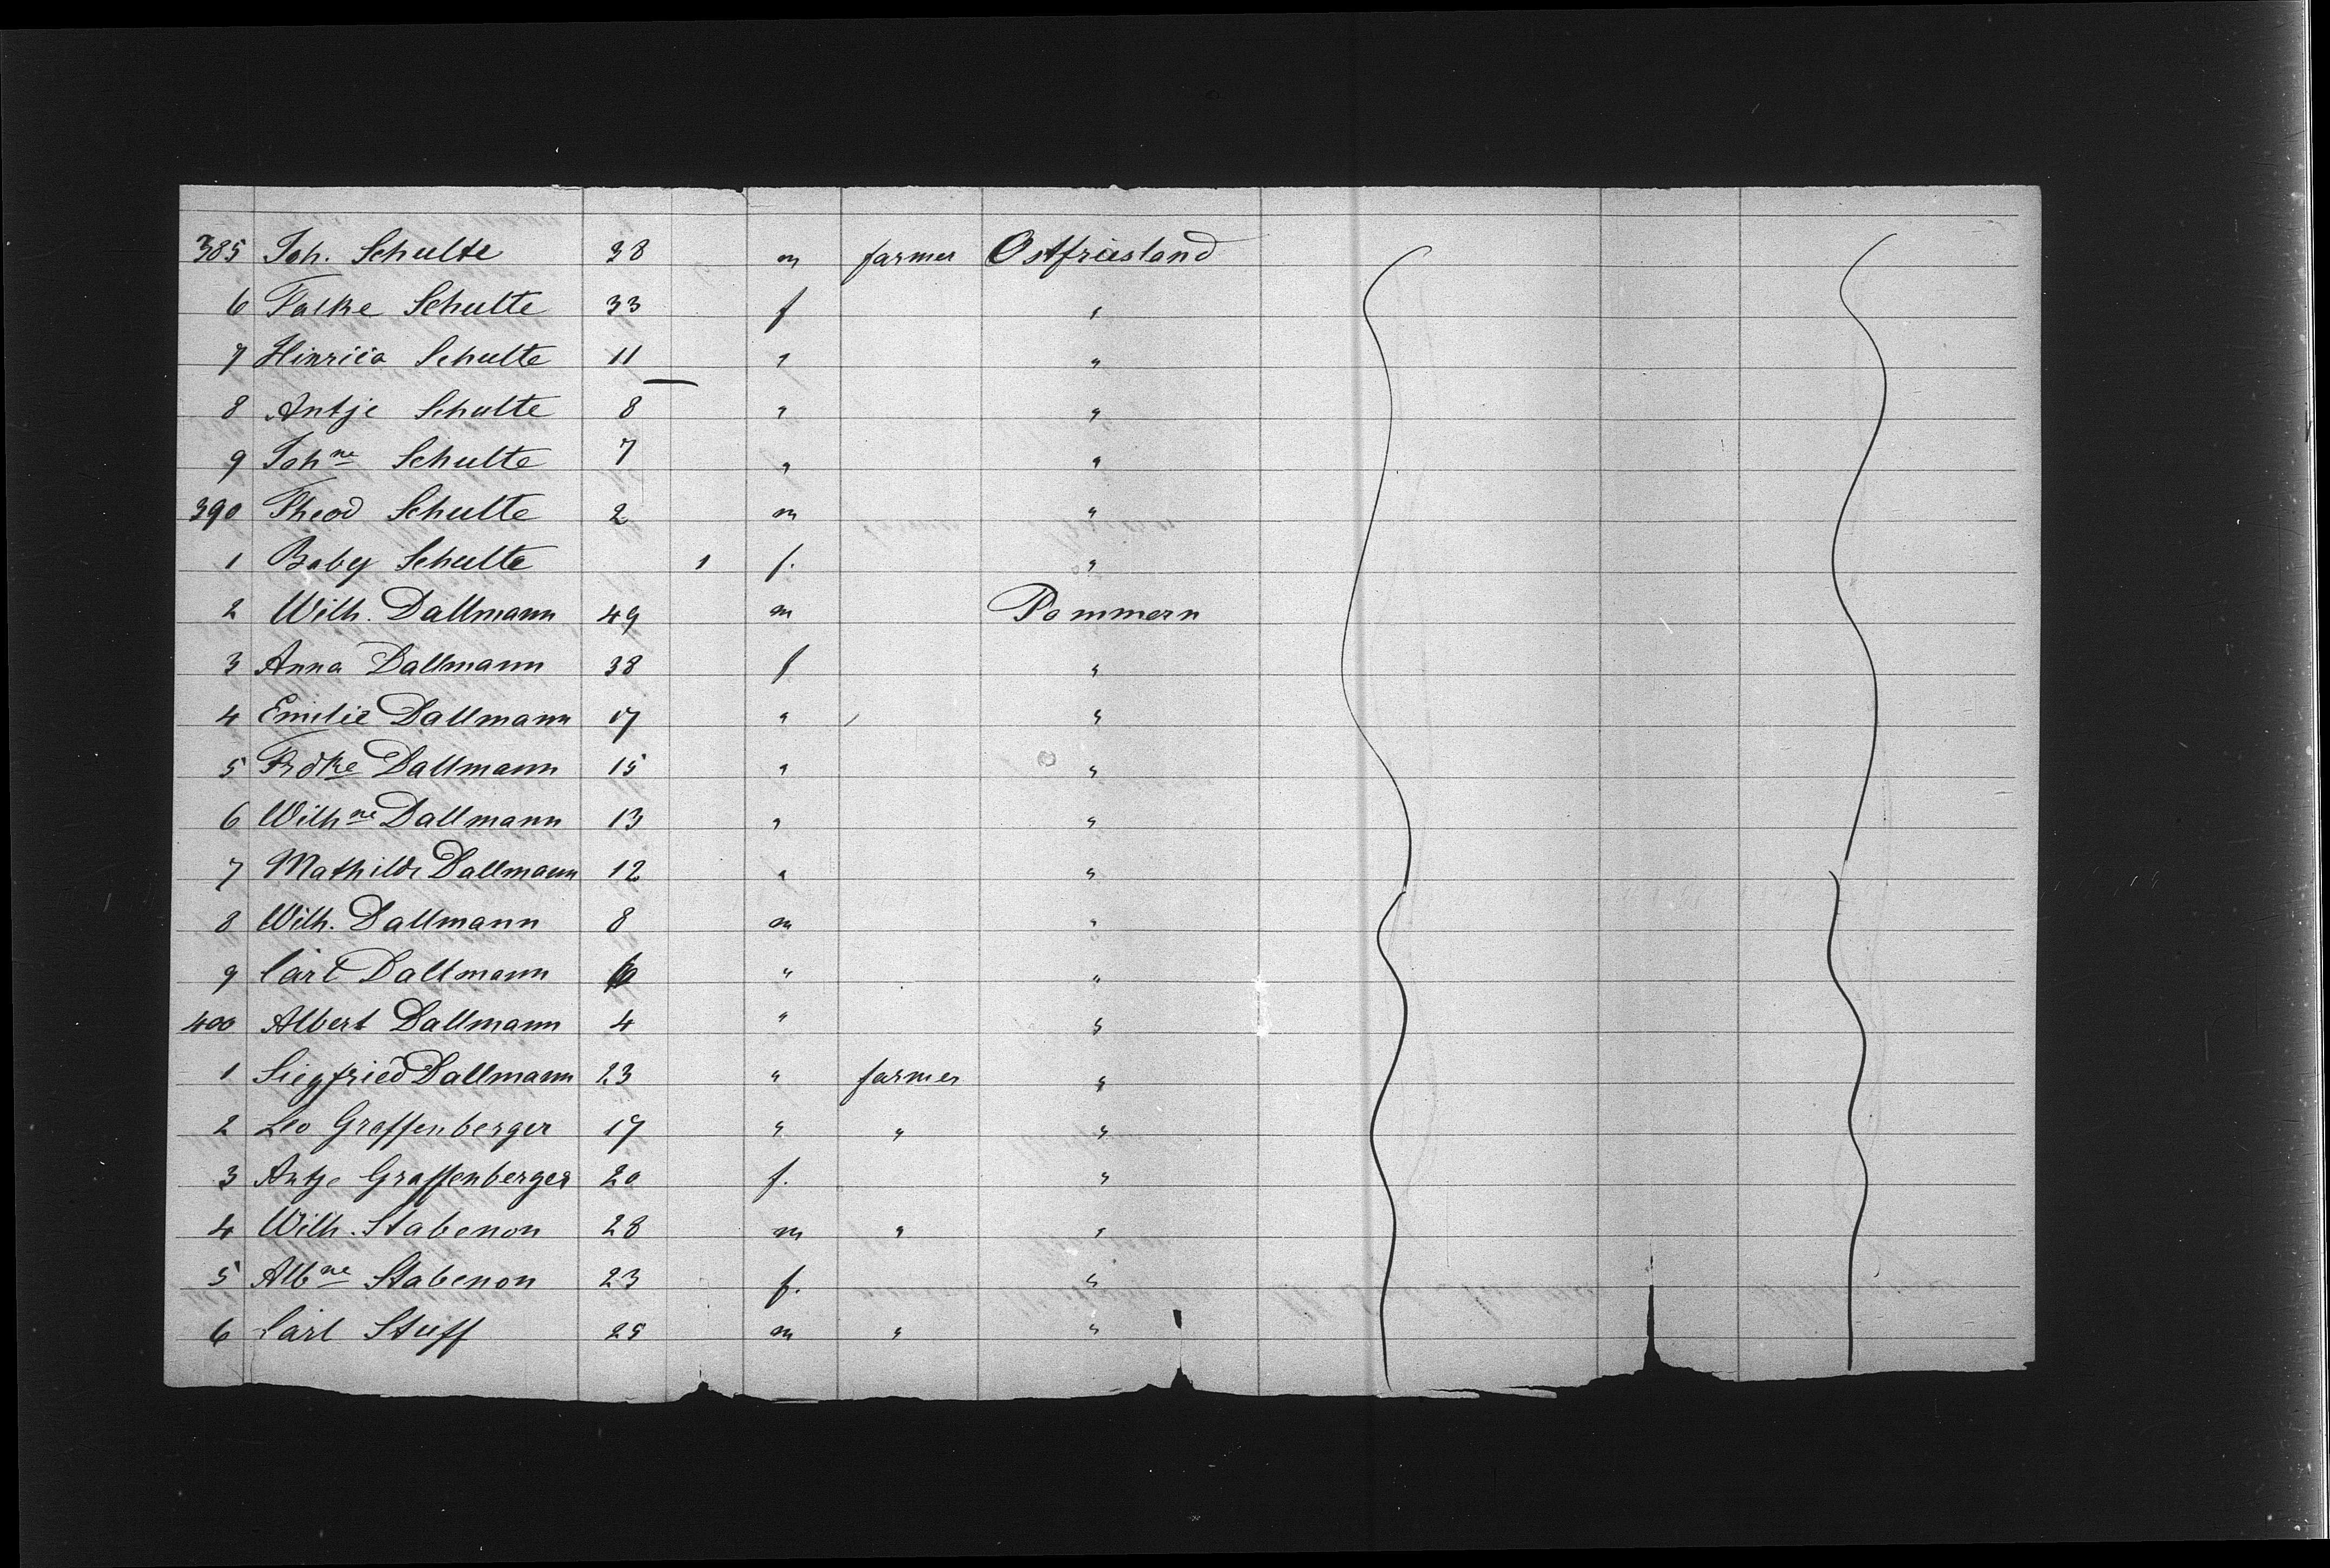 385 Joh. Schulte 38 m farmer Ostfriesland
6 Falke Schulte 33 f "
7 Hinrica Schulte 11 " "
8 Antje Schulte 8 " "
9 Johne Schulte 7 " "
390 Theod Schulte 2 m "
1 Baby Schulte 1 f. "
2 Wilh. Dallmann 49 m Pommern
3 Anna Dallmann 38 f "
4 Emilie Dallmann 17 " "
5 Frdke Dallmann 15 " "
6 Wilhne Dallmann 13 " "
7 Mathilde Dallmann 12 " "
8 Wilh. Dallmann 8 m "
9 Carl Dallmann " "
400 Albert Dallmann 4 " "
1 Siegfried Dallmann 23 " farmer "
2 Leo Graffenberger 17 " " "
3 Antje Graffenberger 20 f. "
4 Wilh. Stabenon 28 m " "
5 Albne Stabenon 23 f. "
6 Carl Stuff 25 m " "